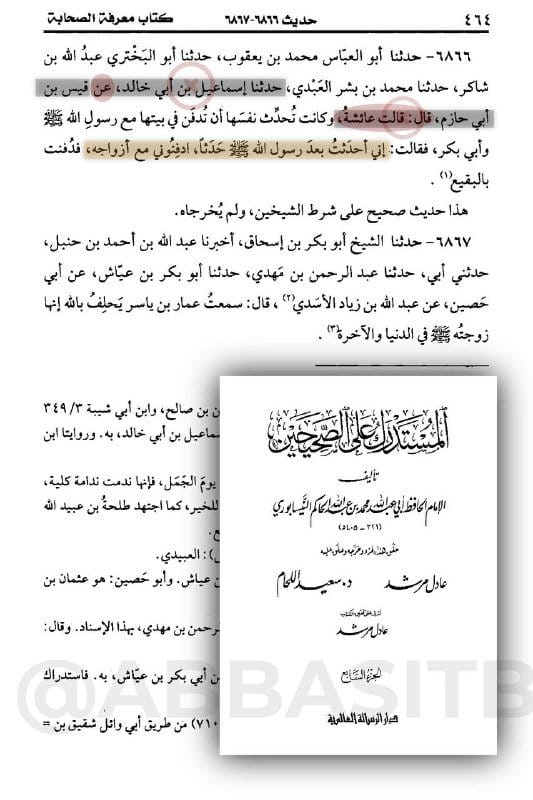 ٤٦٤
حديث ٦٨٦٦-٦٨٦٧
كتاب معرفة الصحابة
٦٨٦٦- حدثنا أبو العبّاس محمد بن يعقوب، حدثنا أبو البَخْتري عبدُ الله بن
شاكر، حدثنا محمد بن بشر العَبْدي، حدثنا إسماعيل بن أبي خالد، عن قيس بن
أبي حازم، قال: قالت عائشةُ، وكانت تُحدِّث نفسَها أن تُدفَن في بيتها مع رسولِ الله ﷺ
وأبي بكر، فقالت: إني أحدَثتُ بعدَ رسول الله ﷺ حَدَثاً، ادفِنُوني مع أزواجه، فدُفنت
بالبقيع(١).
هذا حديث صحيح على شرط الشيخين، ولم يُخرجاه.
٦٨٦٧- حدثنا الشيخ أبو بكر بن إسحاق، أخبرنا عبد الله بن أحمد بن حنبل،
حدثني أبي، حدثنا عبد الرحمن بن مَهدي، حدثنا أبو بكر بن عيّاش، عن أبي
حَصين، عن عبد الله بن زياد الأسَدي(٢)، قال: سمعتُ عمار بن ياسر يَحلِفُ بالله إنها
زوجتُه ﷺ في الدنيا والآخرة(٣).
بن صالح، وابن أبي شيبة ٣/ ٣٤٩
سماعيل بن أبي خالد، به. وروايتا ابن
يومَ الجَمَل، فإنها ندمت ندامة كلية،
للخير، كما اجتهد طلحةُ بن عبيد الله
): العبيدي.
بن عياش. وأبو حَصين: هو عثمان بن
لرحمن بن مهدي، بهذا الإسناد. وقال:
ن أبي بكر بن عيّاش، به. فاستدراك
٧١٠) من طريق أبي وائل شقيق بن =
المستدرك على الصحيحين
تأليف
الإمام الحافظ أبي عبد الله محمد بن عبد الله الحاكم النيسابوري
(٣٢١ - ٤٠٥هـ)
عادل مرشد
د. سعيد اللحام
عادل مرشد
الجزء السابع
دار الرسالة العالمية
@ABBASITB